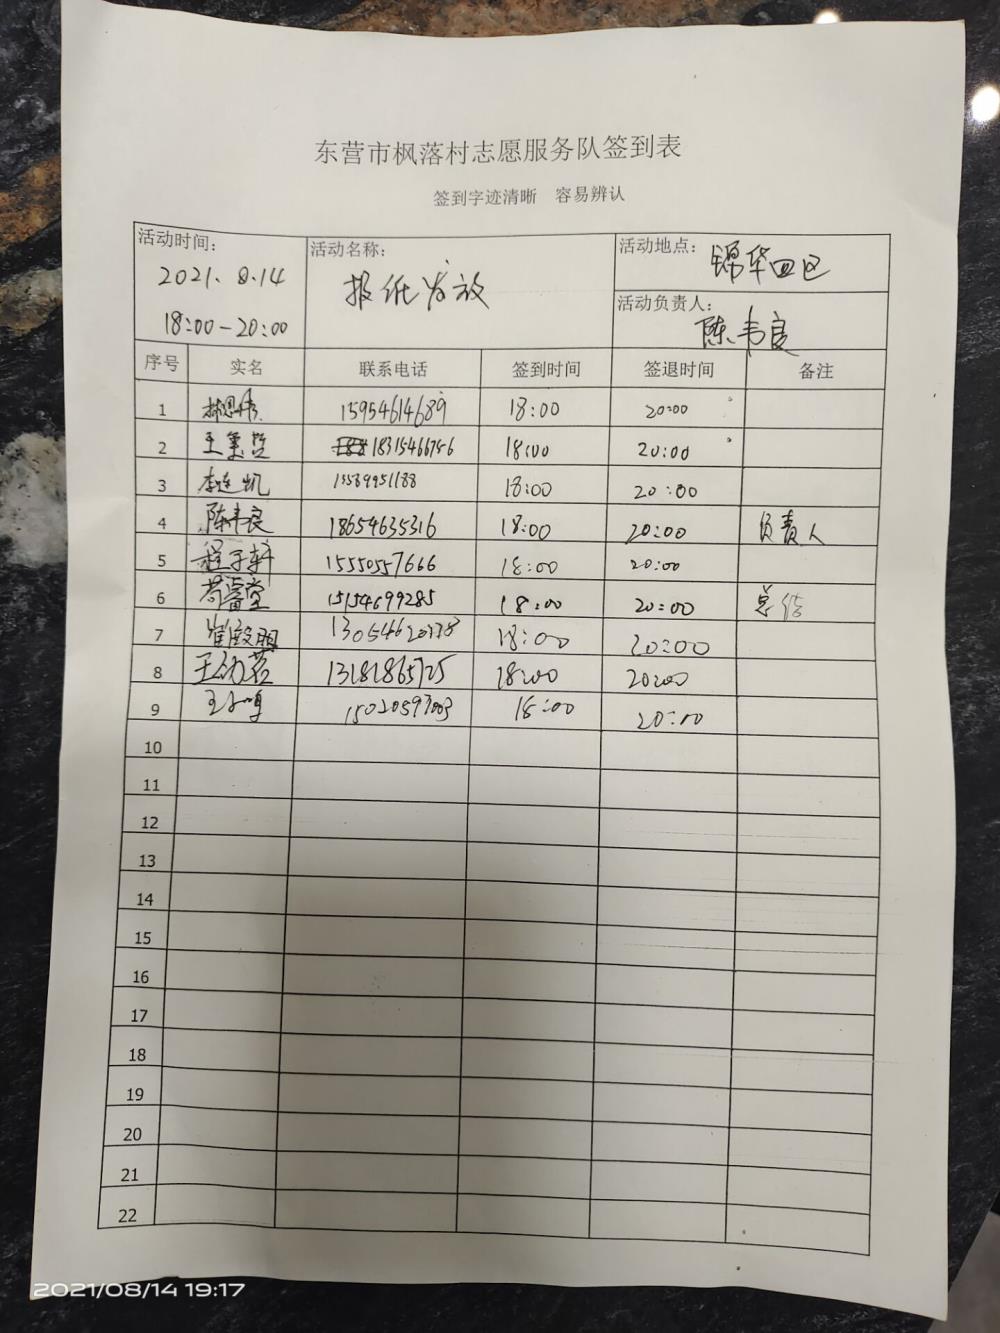 东营市枫落村志愿服务队签到表
签到字迹清晰 容易辨认
活动时间: 活动名称: 活动地点: 锦华四区
2021.8.14 报纸发放
18:00-20:00 活动负责人: 陈韦良
序号 实名 联系电话 签到时间 签退时间 备注
1 15954614689 18:00 20:00
2 18315466756 18:00 20:00
3 李连凯 15589951188 18:00 20:00
4 陈韦良 18654635316 18:00 20:00 负责人
5 程子轩 15550557666 18:00 20:00
6 苟睿堂 15154699285 18:00 20:00 总结
7 18:00 20:00
8 13181865725 18:00 20:00
9 18:00 20:00
10
11
12
13
14
15
16
17
18
19
20
21
22
2021/08/14 19:17